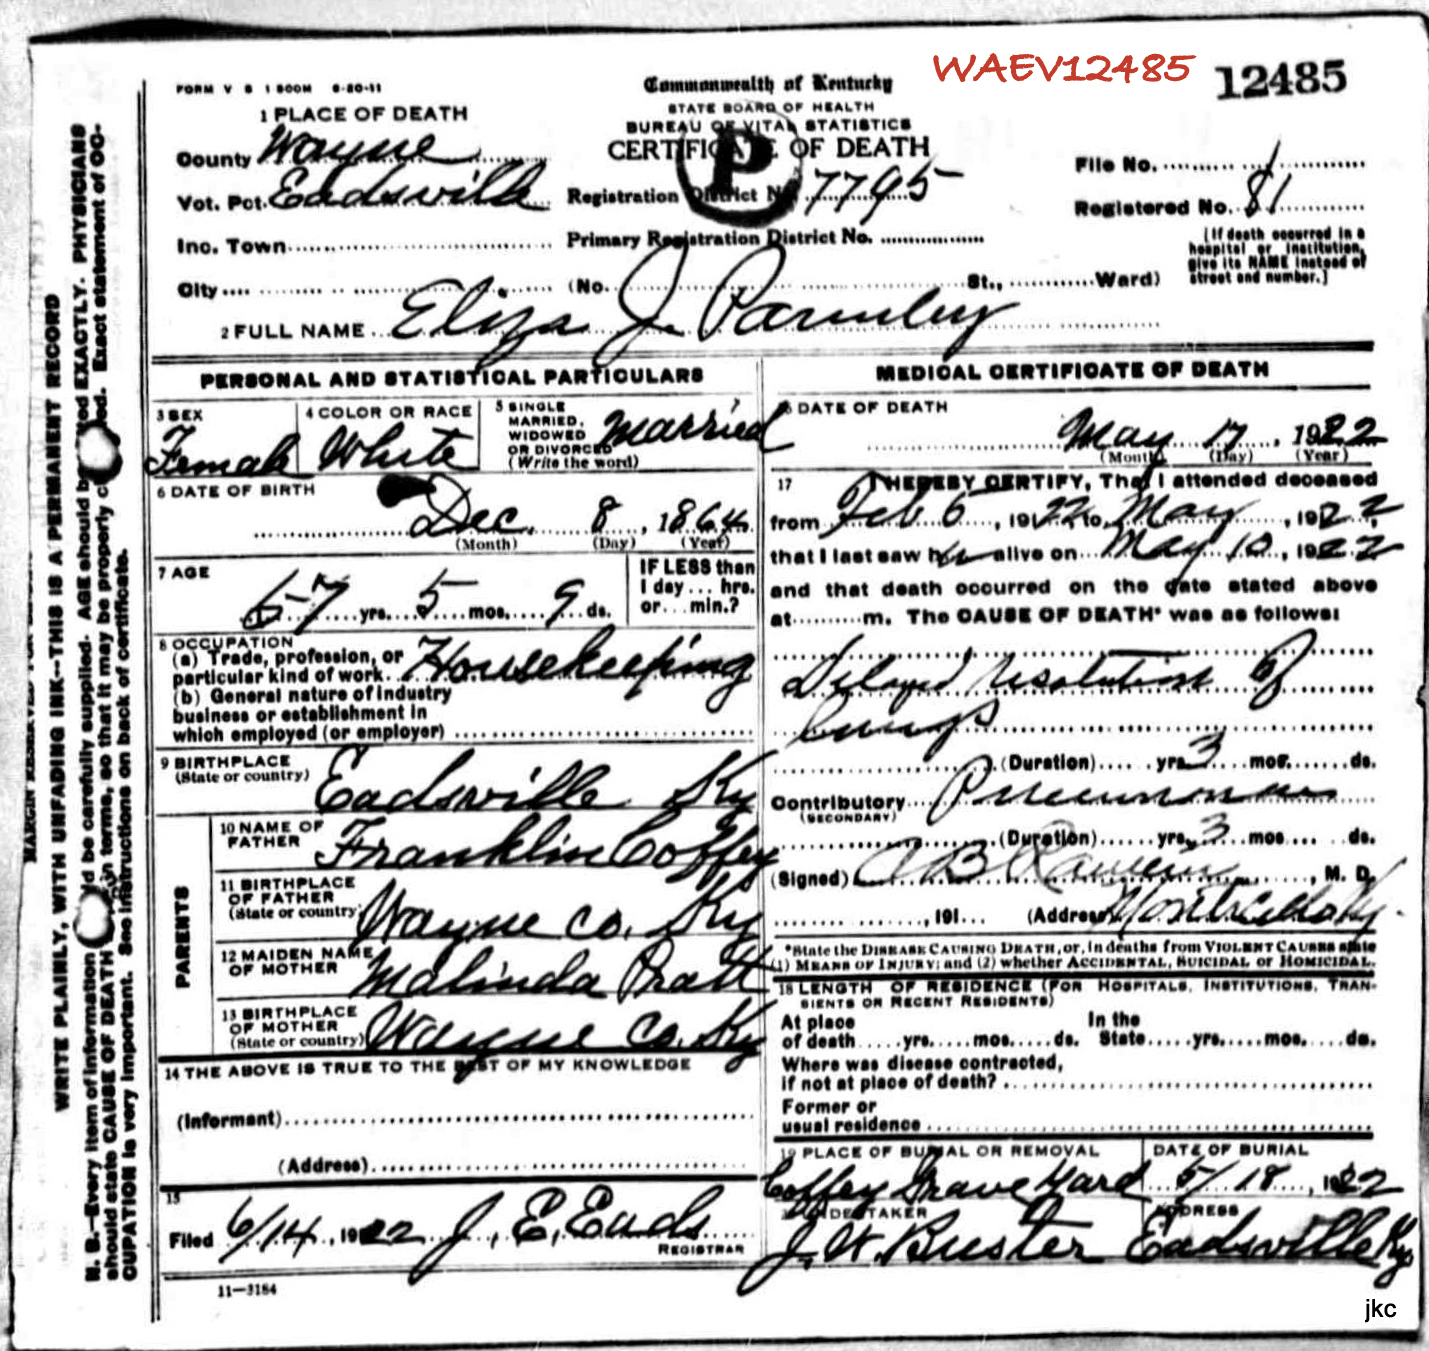 WAEV12485 12485
FORM V S 1 500M 6-20-11
Commonwealth of Kentucky
STATE BOARD OF HEALTH
BUREAU OF VITAL STATISTICS
CERTIFICATE OF DEATH
P
1 PLACE OF DEATH
County Wayne
Vot. Pct. Eadsville
Inc. Town
City (No. St., Ward)
Registration District No. 7795
Primary Registration District No.
File No. 1
Registered No. 81
[If death occurred in a
hospital or institution,
give its NAME instead of
street and number.]
2 FULL NAME Eliza J. Parmley
PERSONAL AND STATISTICAL PARTICULARS
3 SEX
Female
4 COLOR OR RACE
White
5 SINGLE
MARRIED,
WIDOWED
OR DIVORCED
(Write the word)
Married
6 DATE OF BIRTH
Dec 8, 1864
(Month) (Day) (Year)
7 AGE
57 yrs. 5 mos. 9 ds.
IF LESS than
1 day... hrs.
or... min.?
8 OCCUPATION
(a) Trade, profession, or
particular kind of work Housekeeping
(b) General nature of industry
business or establishment in
which employed (or employer)
9 BIRTHPLACE
(State or country)
Eadsville Ky
PARENTS
10 NAME OF
FATHER
Franklin Coffey
11 BIRTHPLACE
OF FATHER
(State or country)
Wayne Co. Ky
12 MAIDEN NAME
OF MOTHER
Malinda Pratt
13 BIRTHPLACE
OF MOTHER
(State or country)
Wayne Co. Ky
14 THE ABOVE IS TRUE TO THE BEST OF MY KNOWLEDGE
(Informant)
(Address)
15
Filed 6/14, 1922 J. E. Eads
REGISTRAR
11—3184
MEDICAL CERTIFICATE OF DEATH
16 DATE OF DEATH
May 17, 1922
(Month) (Day) (Year)
17 I HEREBY CERTIFY, That I attended deceased
from Feb 6, 1922 to May, 1922,
that I last saw her alive on May 10, 1922
and that death occurred on the date stated above
at m. The CAUSE OF DEATH* was as follows:
Delayed resolution of
lungs
(Duration) yrs. 3 mos. ds.
Contributory Pneumonia
(SECONDARY)
(Duration) yrs. 3 mos. ds.
(Signed) , M. D.
, 191 (Address) Monticello Ky.
*State the DISEASE CAUSING DEATH, or, in deaths from VIOLENT CAUSES state
(1) MEANS OF INJURY; and (2) whether ACCIDENTAL, SUICIDAL or HOMICIDAL.
18 LENGTH OF RESIDENCE (FOR HOSPITALS, INSTITUTIONS, TRAN-
SIENTS OR RECENT RESIDENTS)
At place In the
of death yrs. mos. ds. State yrs. mos. ds.
Where was disease contracted,
if not at place of death?
Former or
usual residence
19 PLACE OF BURIAL OR REMOVAL
Coffey Grave Yard
DATE OF BURIAL
5/18, 1922
UNDERTAKER
J. W. Buster
ADDRESS
Eadsville Ky
WRITE PLAINLY, WITH UNFADING INK--THIS IS A PERMANENT RECORD
N. B.—Every item of information should be carefully supplied. AGE should be stated EXACTLY. PHYSICIANS
should state CAUSE OF DEATH in terms, so that it may be properly classified. Exact statement of OC-
CUPATION is very important. See instructions on back of certificate.
jkc